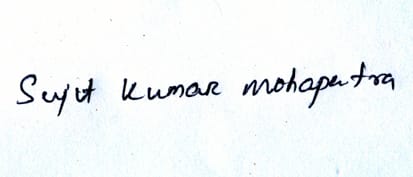 Sujit Kumar mohapatra